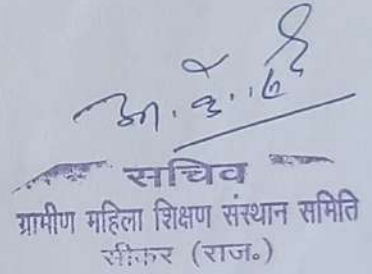 सचिव
ग्रामीण महिला शिक्षण संस्थान समिति
सीकर (राज॰)